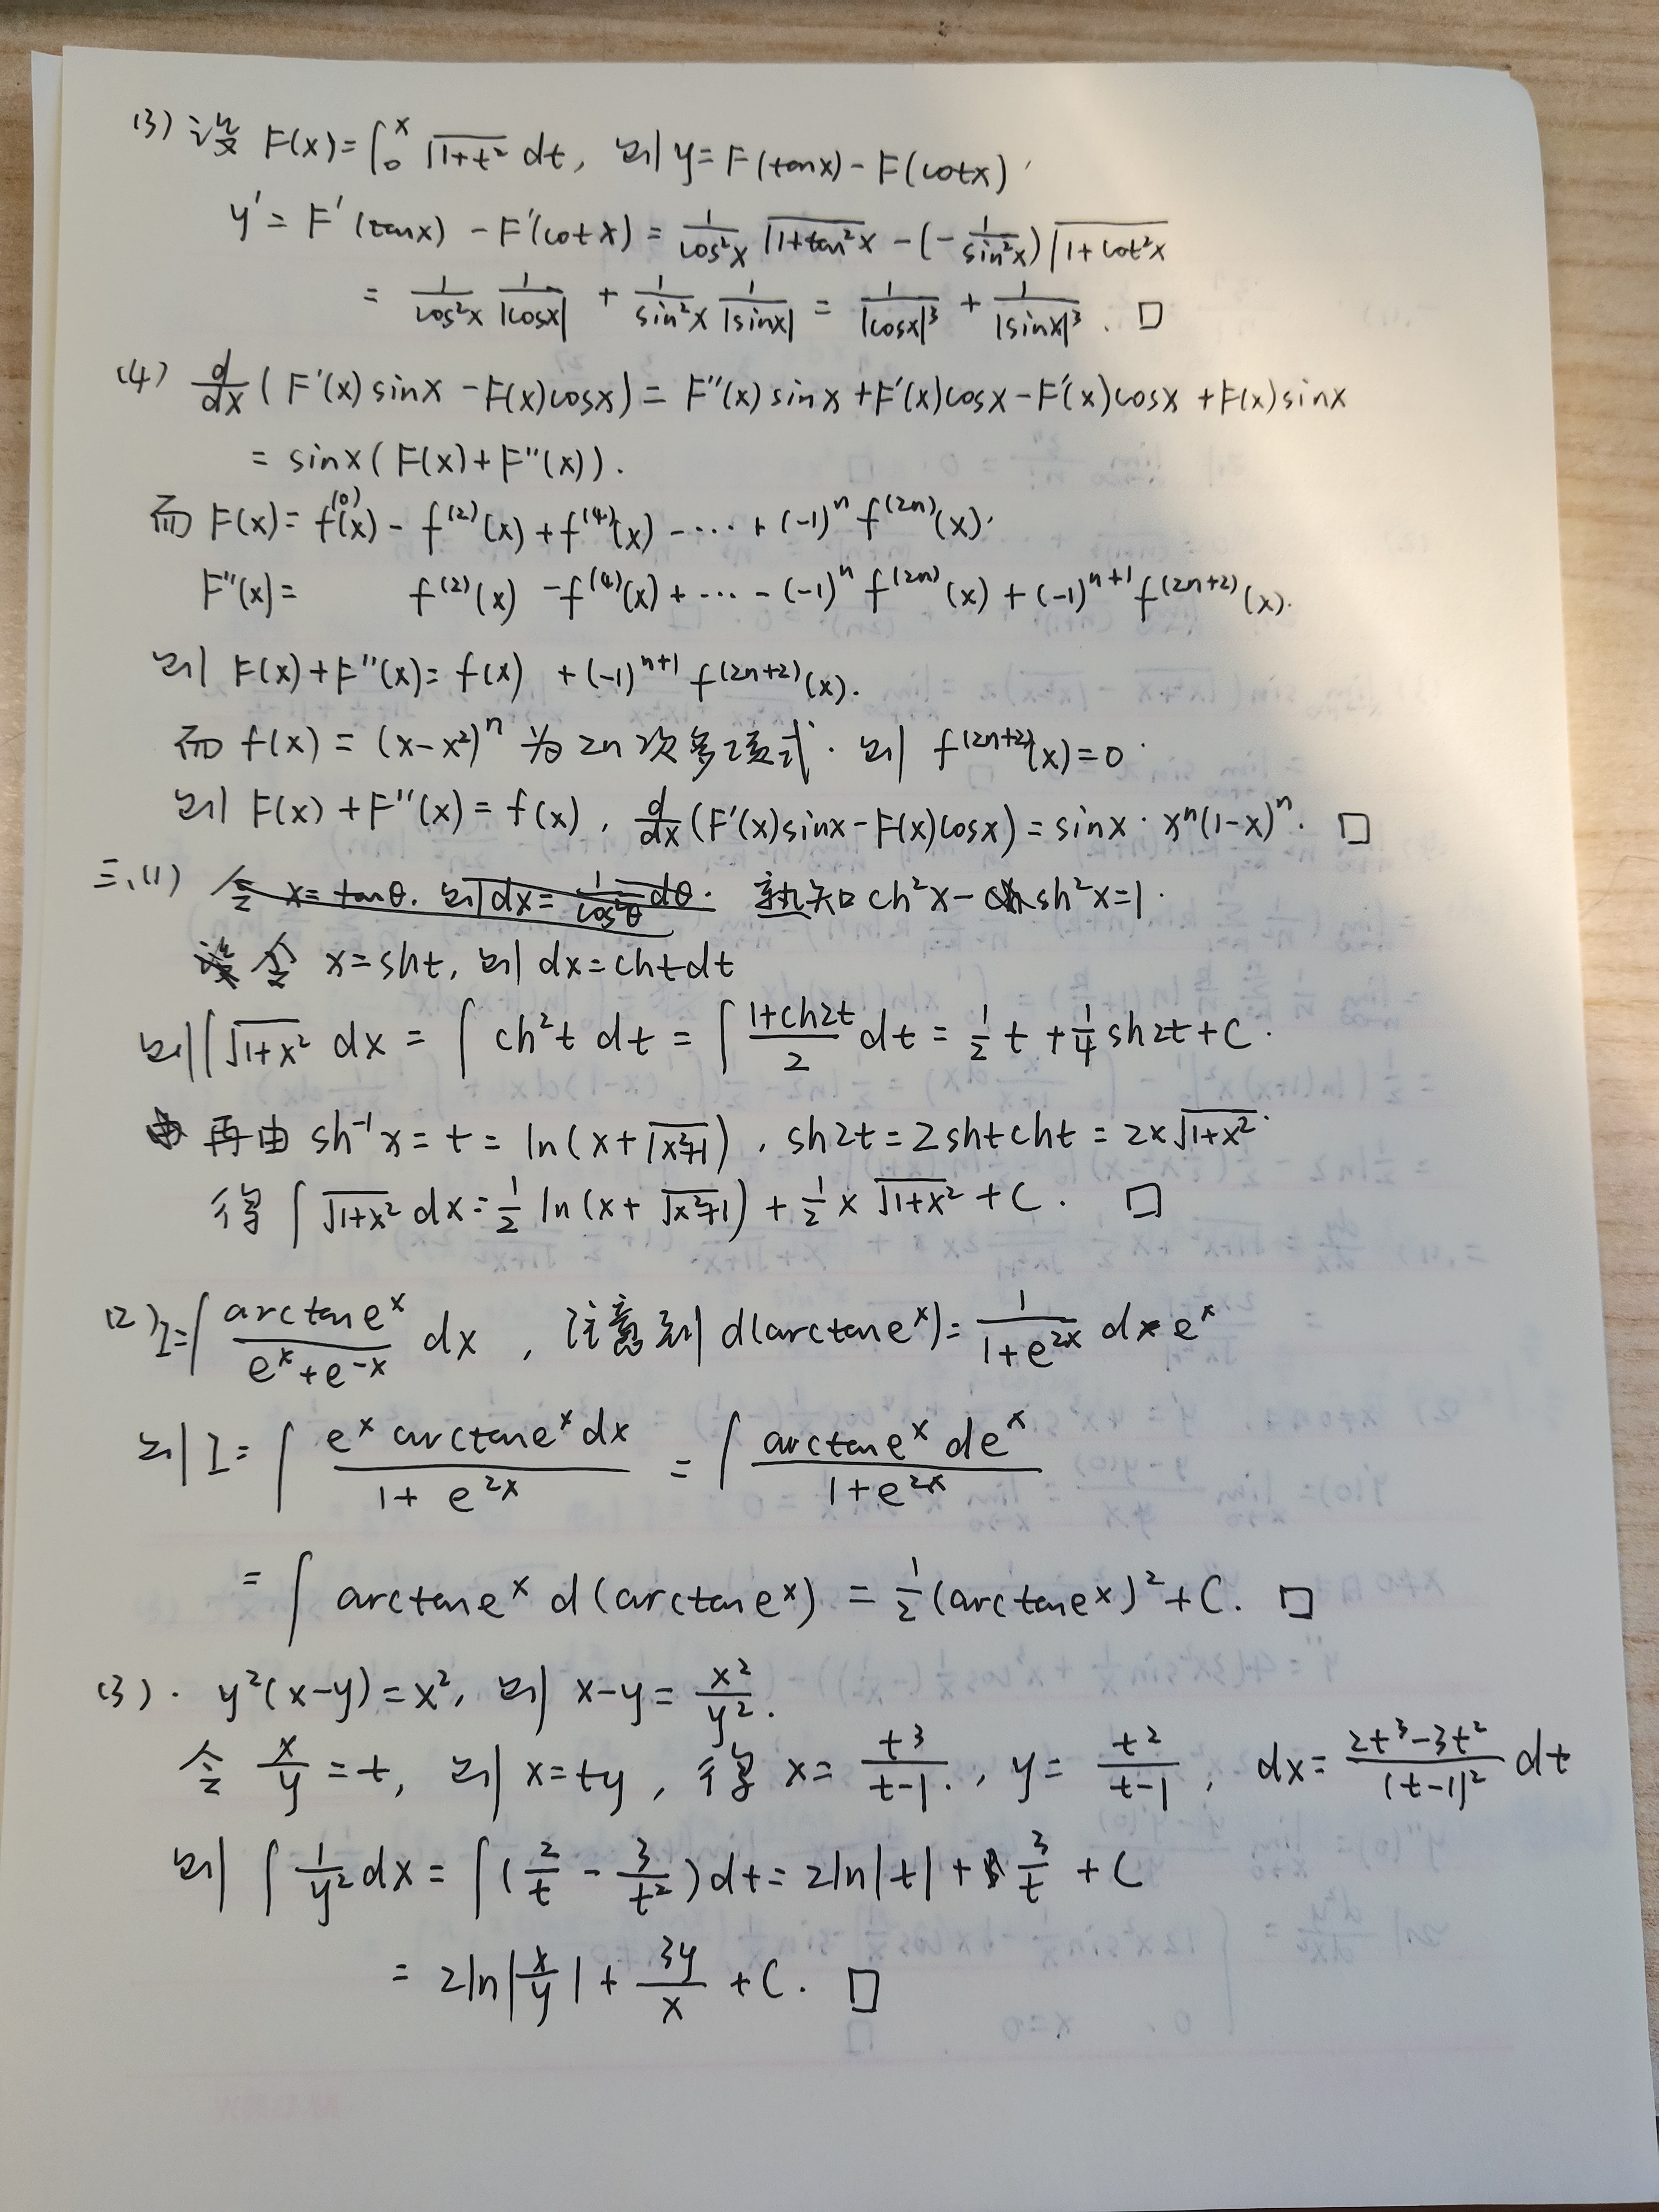 (3) 设 F(x)=∫₀ˣ √(1+t²) dt, 则 y=F(tanx)-F(cotx).
y'=F'(tanx)-F'(cotx)= 1/cos²x √(1+tan²x) -(-1/sin²x)√(1+cot²x)
= 1/cos²x 1/|cosx| + 1/sin²x 1/|sinx| = 1/|cosx|³ + 1/|sinx|³. □
(4) d/dx (F'(x)sinx-F(x)cosx)=F''(x)sinx+F'(x)cosx-F'(x)cosx+F(x)sinx
= sinx(F(x)+F''(x)).
而 F(x)=f⁽⁰⁾(x)-f⁽²⁾(x)+f⁽⁴⁾(x)-⋯+(-1)ⁿf⁽²ⁿ⁾(x).
F''(x)= f⁽²⁾(x)-f⁽⁴⁾(x)+⋯-(-1)ⁿf⁽²ⁿ⁾(x)+(-1)ⁿ⁺¹f⁽²ⁿ⁺²⁾(x).
则 F(x)+F''(x)=f(x)+(-1)ⁿ⁺¹f⁽²ⁿ⁺²⁾(x).
而 f(x)=(x-x²)ⁿ 为2n次多项式. 则 f⁽²ⁿ⁺²⁾(x)=0.
则 F(x)+F''(x)=f(x), d/dx (F'(x)sinx-F(x)cosx)=sinx·xⁿ(1-x)ⁿ. □
三.(1) 令 x=tanθ. 则 dx=1/cos²θ dθ. 熟知 ch²x-sh²x=1.
令 x=sht, 则 dx=chtdt
则 ∫√(1+x²) dx = ∫ch²t dt = ∫(1+ch2t)/2 dt = 1/2 t + 1/4 sh2t+C.
再由 sh⁻¹x=t=ln(x+√(x²+1)), sh2t=2shtcht=2x√(1+x²).
得 ∫√(1+x²) dx=1/2 ln(x+√(x²+1))+1/2 x√(1+x²)+C. □
(2) I=∫ arctaneˣ/(eˣ+e⁻ˣ) dx, 注意到 d(arctaneˣ)=1/(1+e²ˣ) deˣ
则 I=∫ eˣarctaneˣdx/(1+e²ˣ) = ∫ arctaneˣdeˣ/(1+e²ˣ)
=∫ arctaneˣ d(arctaneˣ) = 1/2 (arctaneˣ)²+C. □
(3). y²(x-y)=x², 则 x-y=x²/y².
令 x/y=t, 则 x=ty, 得 x=t³/(t-1), y=t²/(t-1), dx=(2t³-3t²)/(t-1)² dt
则 ∫ 1/y² dx=∫(2/t-3/t²)dt=2ln|t|+3/t+C
=2ln|x/y|+3y/x+C. □